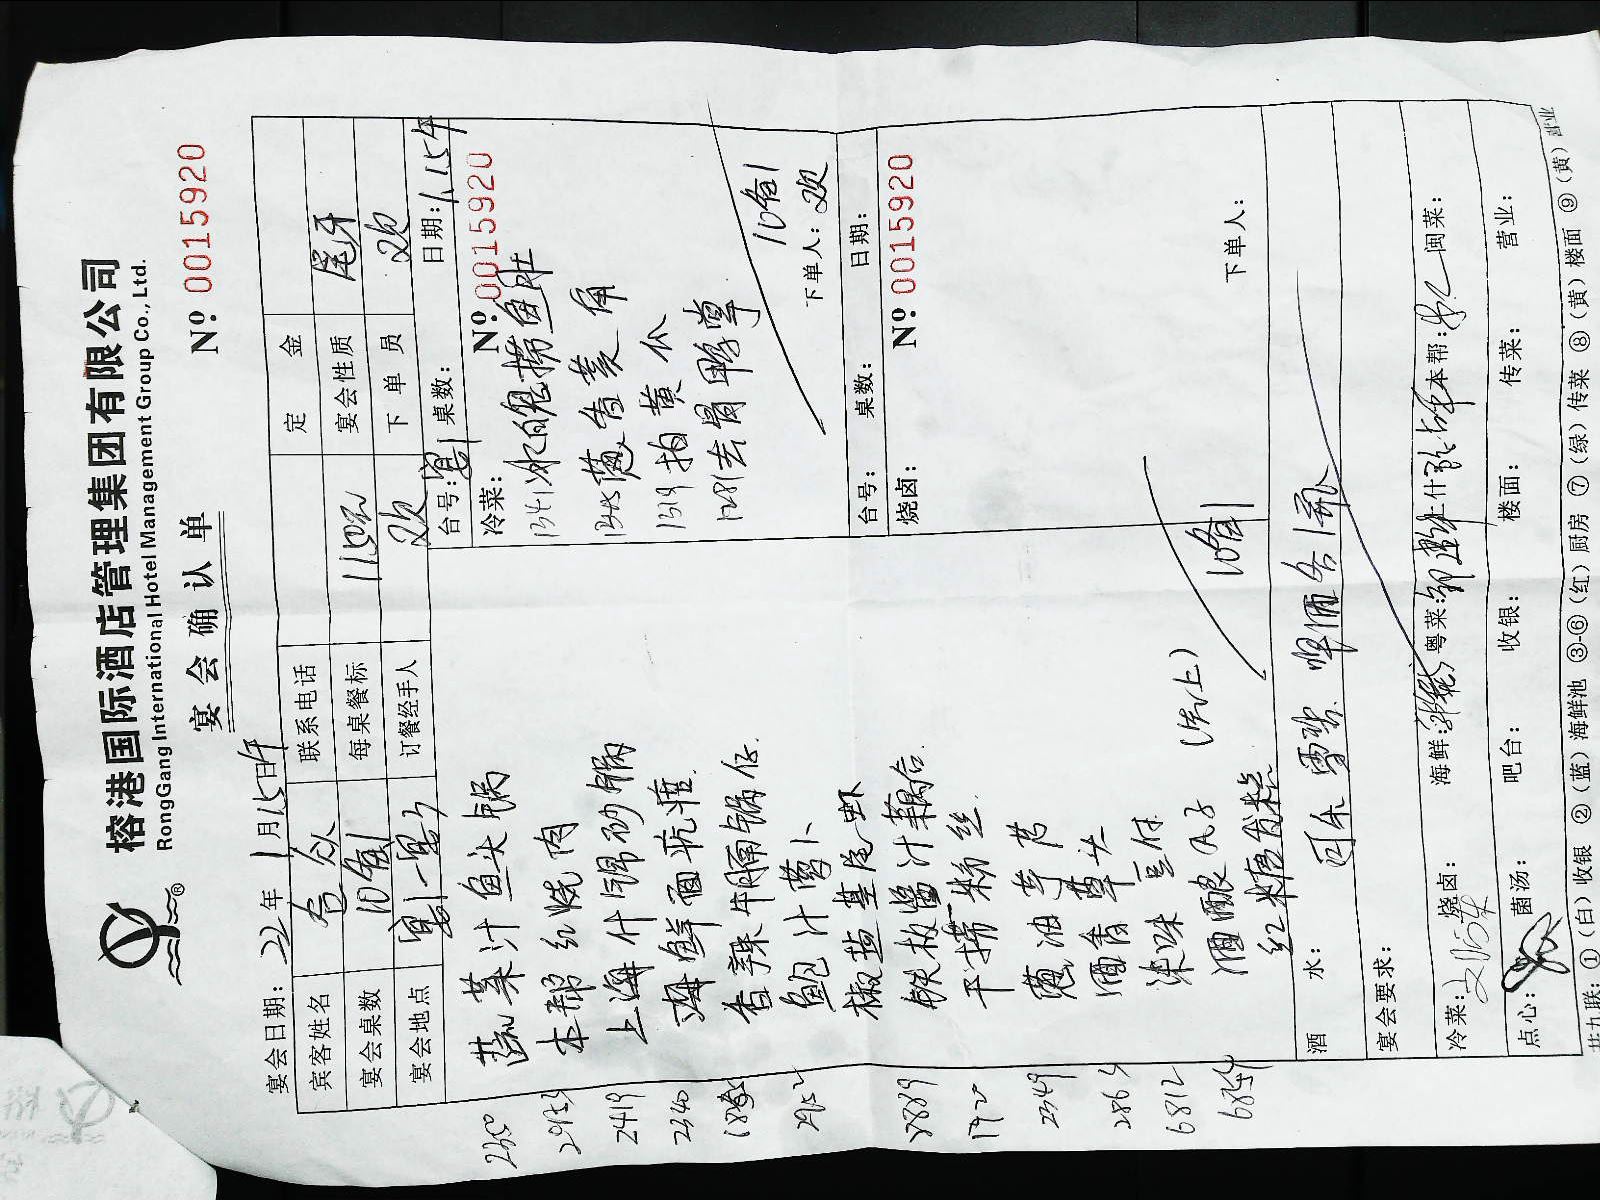 榕港国际酒店管理集团有限公司
RongGang International Hotel Management Group Co., Ltd.
宴会确认单
№ 0015920
宴会日期: 22年1月15日午
宾客姓名 台众 联系电话 定金
宴会桌数 10备1 每桌餐标 1150元 宴会性质 尾牙
宴会地点 宴1-宴3 订餐经手人 欢 下单员 欢
2350 蔬菜汁鱼头锅
本帮红烧肉
2419 上海什锦砂锅
2340 海鲜面疙瘩
香辣牛腩锅仔
鲍汁萝卜
椒盐基尾虾
铁板酱汁藕合
干捞粉丝
2349 葱油芋艿
2864 酒香草头
6812 淋味豆付
酒酿丸子 (先上)
红糖糍粑
10备1
台号: 宴1 桌数: 日期: 1.15午
冷菜: № 0015920
1341 冰镇捞鱼胗
葱香黄角
1319 拍黄瓜
1281 去骨鸭掌
10备1
下单人: 欢
台号: 桌数: 日期:
烧卤: № 0015920
下单人:
酒水: 可乐 雪碧 啤酒各1
宴会要求:
冷菜: 烧卤: 海鲜: 粤菜: 什 本帮: 闽菜:
点心: 菌汤: 吧台: 收银: 楼面: 传菜: 营业:
共九联: ①(白)收银 ②(蓝)海鲜池 ③-⑥(红)厨房 ⑦(绿)传菜 ⑧(黄)楼面 ⑨(黄)营业